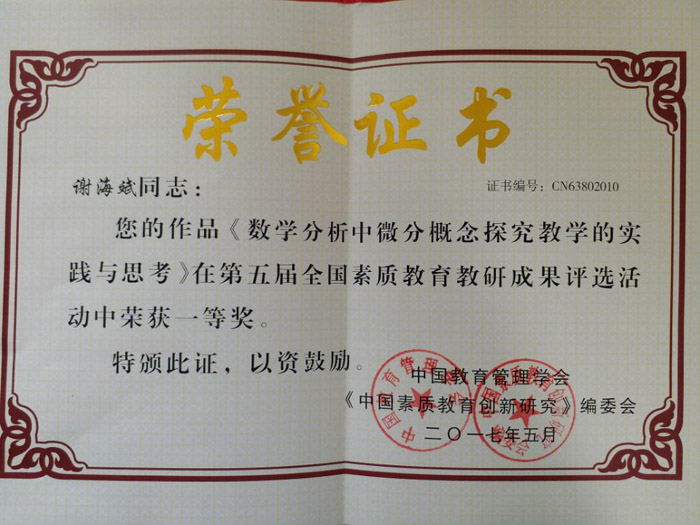 荣誉证书
谢海斌同志：
证书编号：CN63802010
您的作品《数学分析中微分概念探究教学的实
践与思考》在第五届全国素质教育教研成果评选活
动中荣获一等奖。
特颁此证，以资鼓励。
中国教育管理学会
《中国素质教育创新研究》编委会
二〇一七年五月